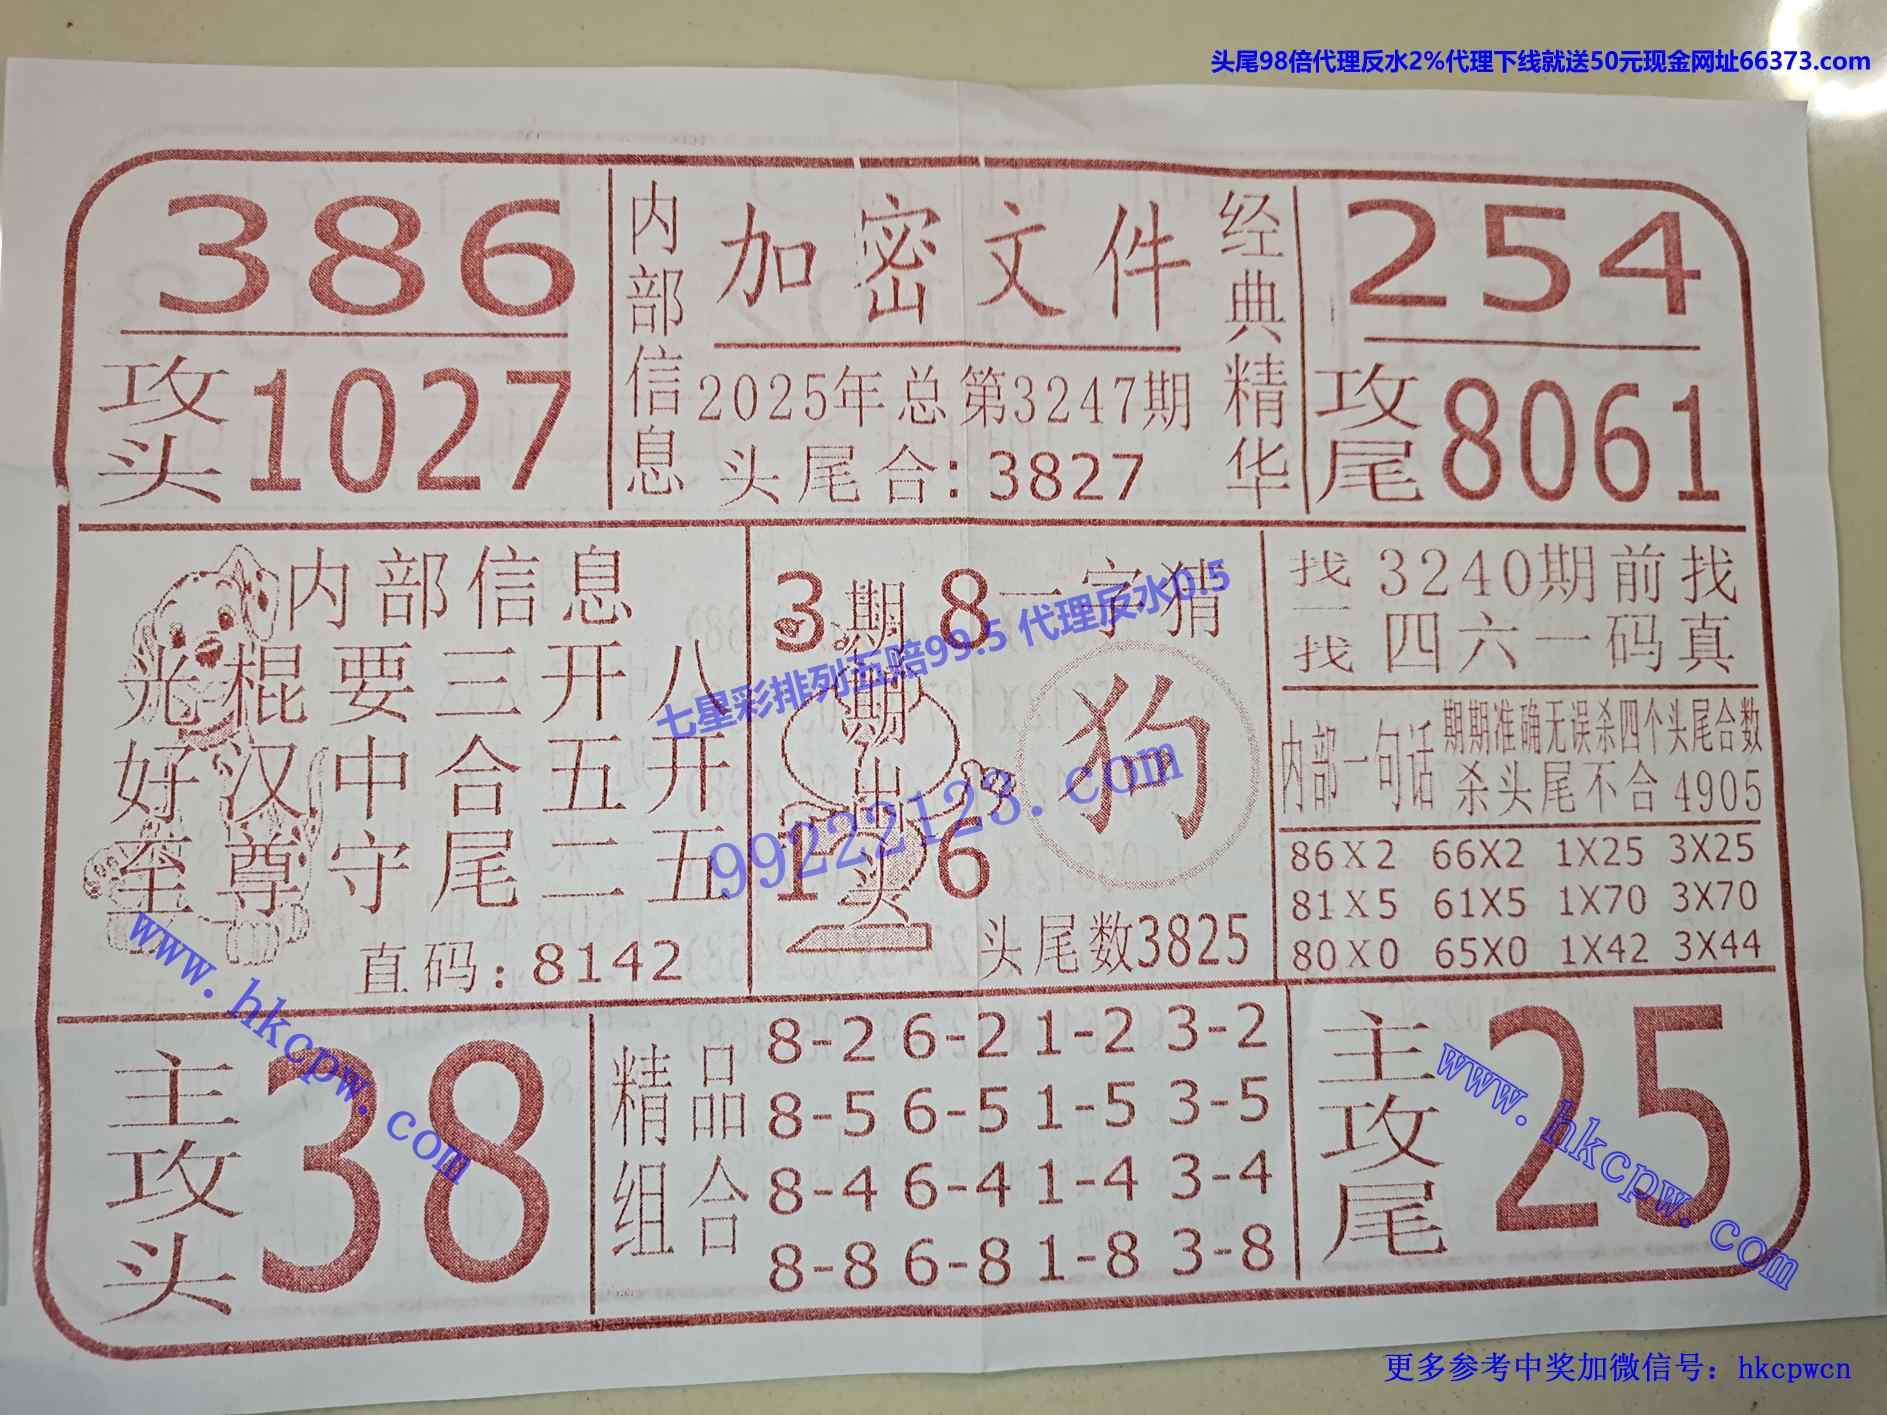 头尾98倍代理反水2%代理下线就送50元现金网址66373.com
386
攻头 1027
内部信息
加密文件
2025年总第3247期
头尾合:3827
经典精华
254
攻尾 8061
内部信息
光棍要三开八
好汉中合五开
至尊守尾二五
直码:8142
3 8
期期出头
1 6
一字猜
狗
头尾数3825
找一找
3240期前找
四六一码真
内部一句话
期期准确无误杀四个头尾合数
杀头尾不合4905
86X2 66X2 1X25 3X25
81X5 61X5 1X70 3X70
80X0 65X0 1X42 3X44
主攻头
38
精品组合
8-2 6-2 1-2 3-2
8-5 6-5 1-5 3-5
8-4 6-4 1-4 3-4
8-8 6-8 1-8 3-8
主攻尾
25
七星彩排列五赔99.5 代理反水0.5
99222123.com
www.hkcpw.com
www.hkcpw.com
更多参考中奖加微信号：hkcpwcn